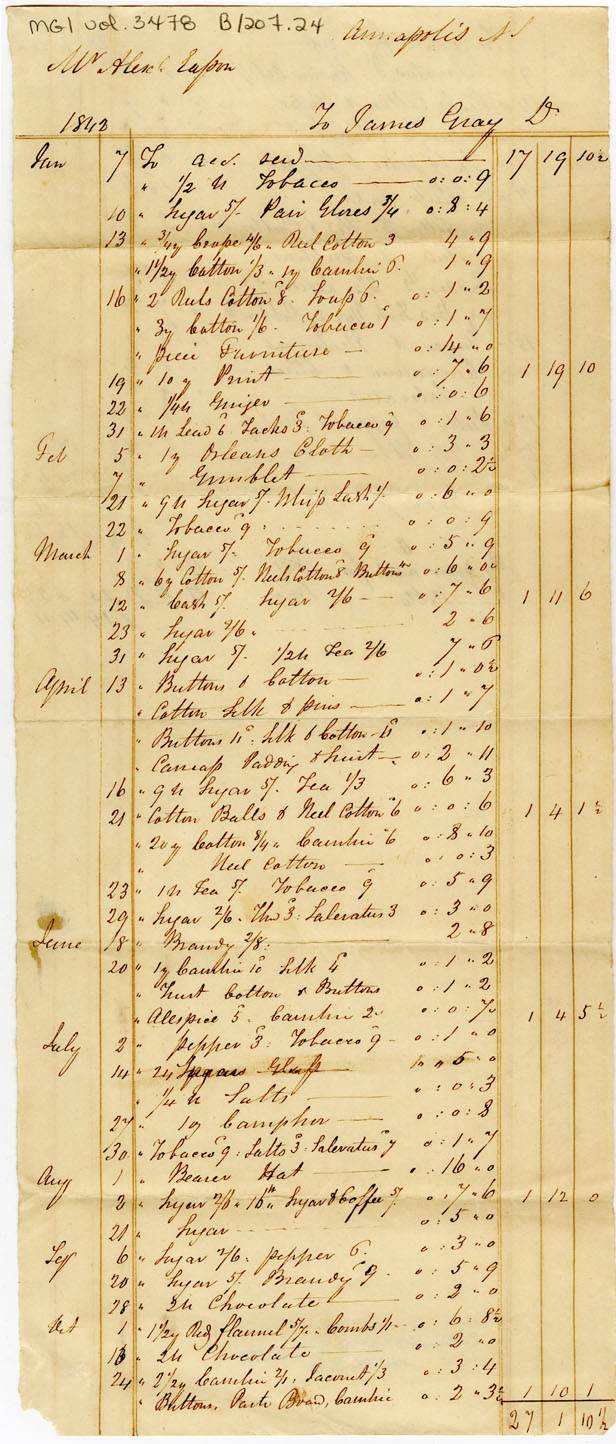 MG1 vol. 3478 B/207.24
Annapolis NS
Mr Alexr. Eason
1843 To James Gray Dr
Jan 7 To acc. send 17 19 10½
" ½ lb Tobacco 0:0:9
10 " Sugar 5/. Pair Gloves 3/4 0:8:4
13 " ¾y Crape 4/6 " Reel Cotton 3 4 " 9
" 1½y Cotton 1/3 " 1y Cambric 6. 1 " 9
16 " 2 Reels Cotton 8. Soap 6. 0:1 " 2
" 3y Cotton 1/6. Tobacco 1 0:1 " 7
" piece Furniture 0:14 " 0
19 " 10 y Print 0:7 " 6 1 19 10
22 " ¼ lb Ginger 0:0:6
31 " 1 lb Lead 6 Tacks 3: Tobacco 9 0:1 " 6
Feb 5 " 1y Orleans Cloth 0:3 " 3
7 " Gimblet 0:0:2½
21 " 9 lb Sugar 5/. Whip Lash 1/. 0:6 " 0
22 " Tobacco 9 0:0:9
March 1 " Sugar 5/. Tobacco 9 0:5 " 9
8 " 6y Cotton 5/. Reels Cotton 8 Buttons 0:6 " 0
12 " Cash 5/. Sugar 2/6 0:7 " 6 1 11 6
23 " Sugar 2/6 " 2 " 6
31 " Sugar 5/. ½ lb Tea 2/6 7 " 6
April 13 " Buttons & Cotton 0:1 " 0½
" Cotton Silk & pins 0:1 " 7
" Buttons 11: Silk & Cotton 11 0:1 " 10
" Canvas Padding & twist 0:2 " 11
16 " 9 lb Sugar 5/. Tea 1/3 0:6 " 3
21 " Cotton Balls & Reel Cotton 6 0:0:6 1 4 1½
" 20y Cotton 8/4 " Cambric 6 0:8 " 10
" Reel Cotton 0:0:3
23 " 1 lb Tea 5/. Tobacco 9 0:5 " 9
29 " Sugar 2/6 " 3: Saleratus 3 0:3 " 0
June 18 " Brandy 2/8: 2 " 8
20 " 1y Cambric 10 Silk 4 0:1 " 2
" Twist Cotton & Buttons 0:1 " 2
" Allspice 5. Cambric 2½ 0:0:7½ 1 4 5½
July 2 " pepper 3: Tobacco 9 0:1 " 0
14 " 24 Glass 5 " 0
" ¼ lb Salts 0:0:3
27 " 1oz Camphor 0:0:8
30 " Tobacco 9: Salts 3: Saleratus 7 0:1 " 7
Aug 1 " Beaver Hat 0:16 " 0
2 " Sugar 2/6 " 1 lb " Sugar & Coffee 5/. 0:7 " 6 1 12 0
21 " Sugar 0:5 " 0
Sep 6 " Sugar 2/6. pepper 6. 0:3 " 0
20 " Sugar 5/. Brandy 9. 0:5 " 9
28 " 2 lb Chocolate 0:2 " 0
Oct 1 " 1½y Red flannel 5/7½ " Combs 1/1 0:6:8½
13 " 2 lb Chocolate 0:2 " 0
24 " 2½y Cambric 2/1: Jaconet 1/3 0:3:4
" Buttons, Paste Board, Cambric 0:2 " 3½ 1 10 1
27 1 10½